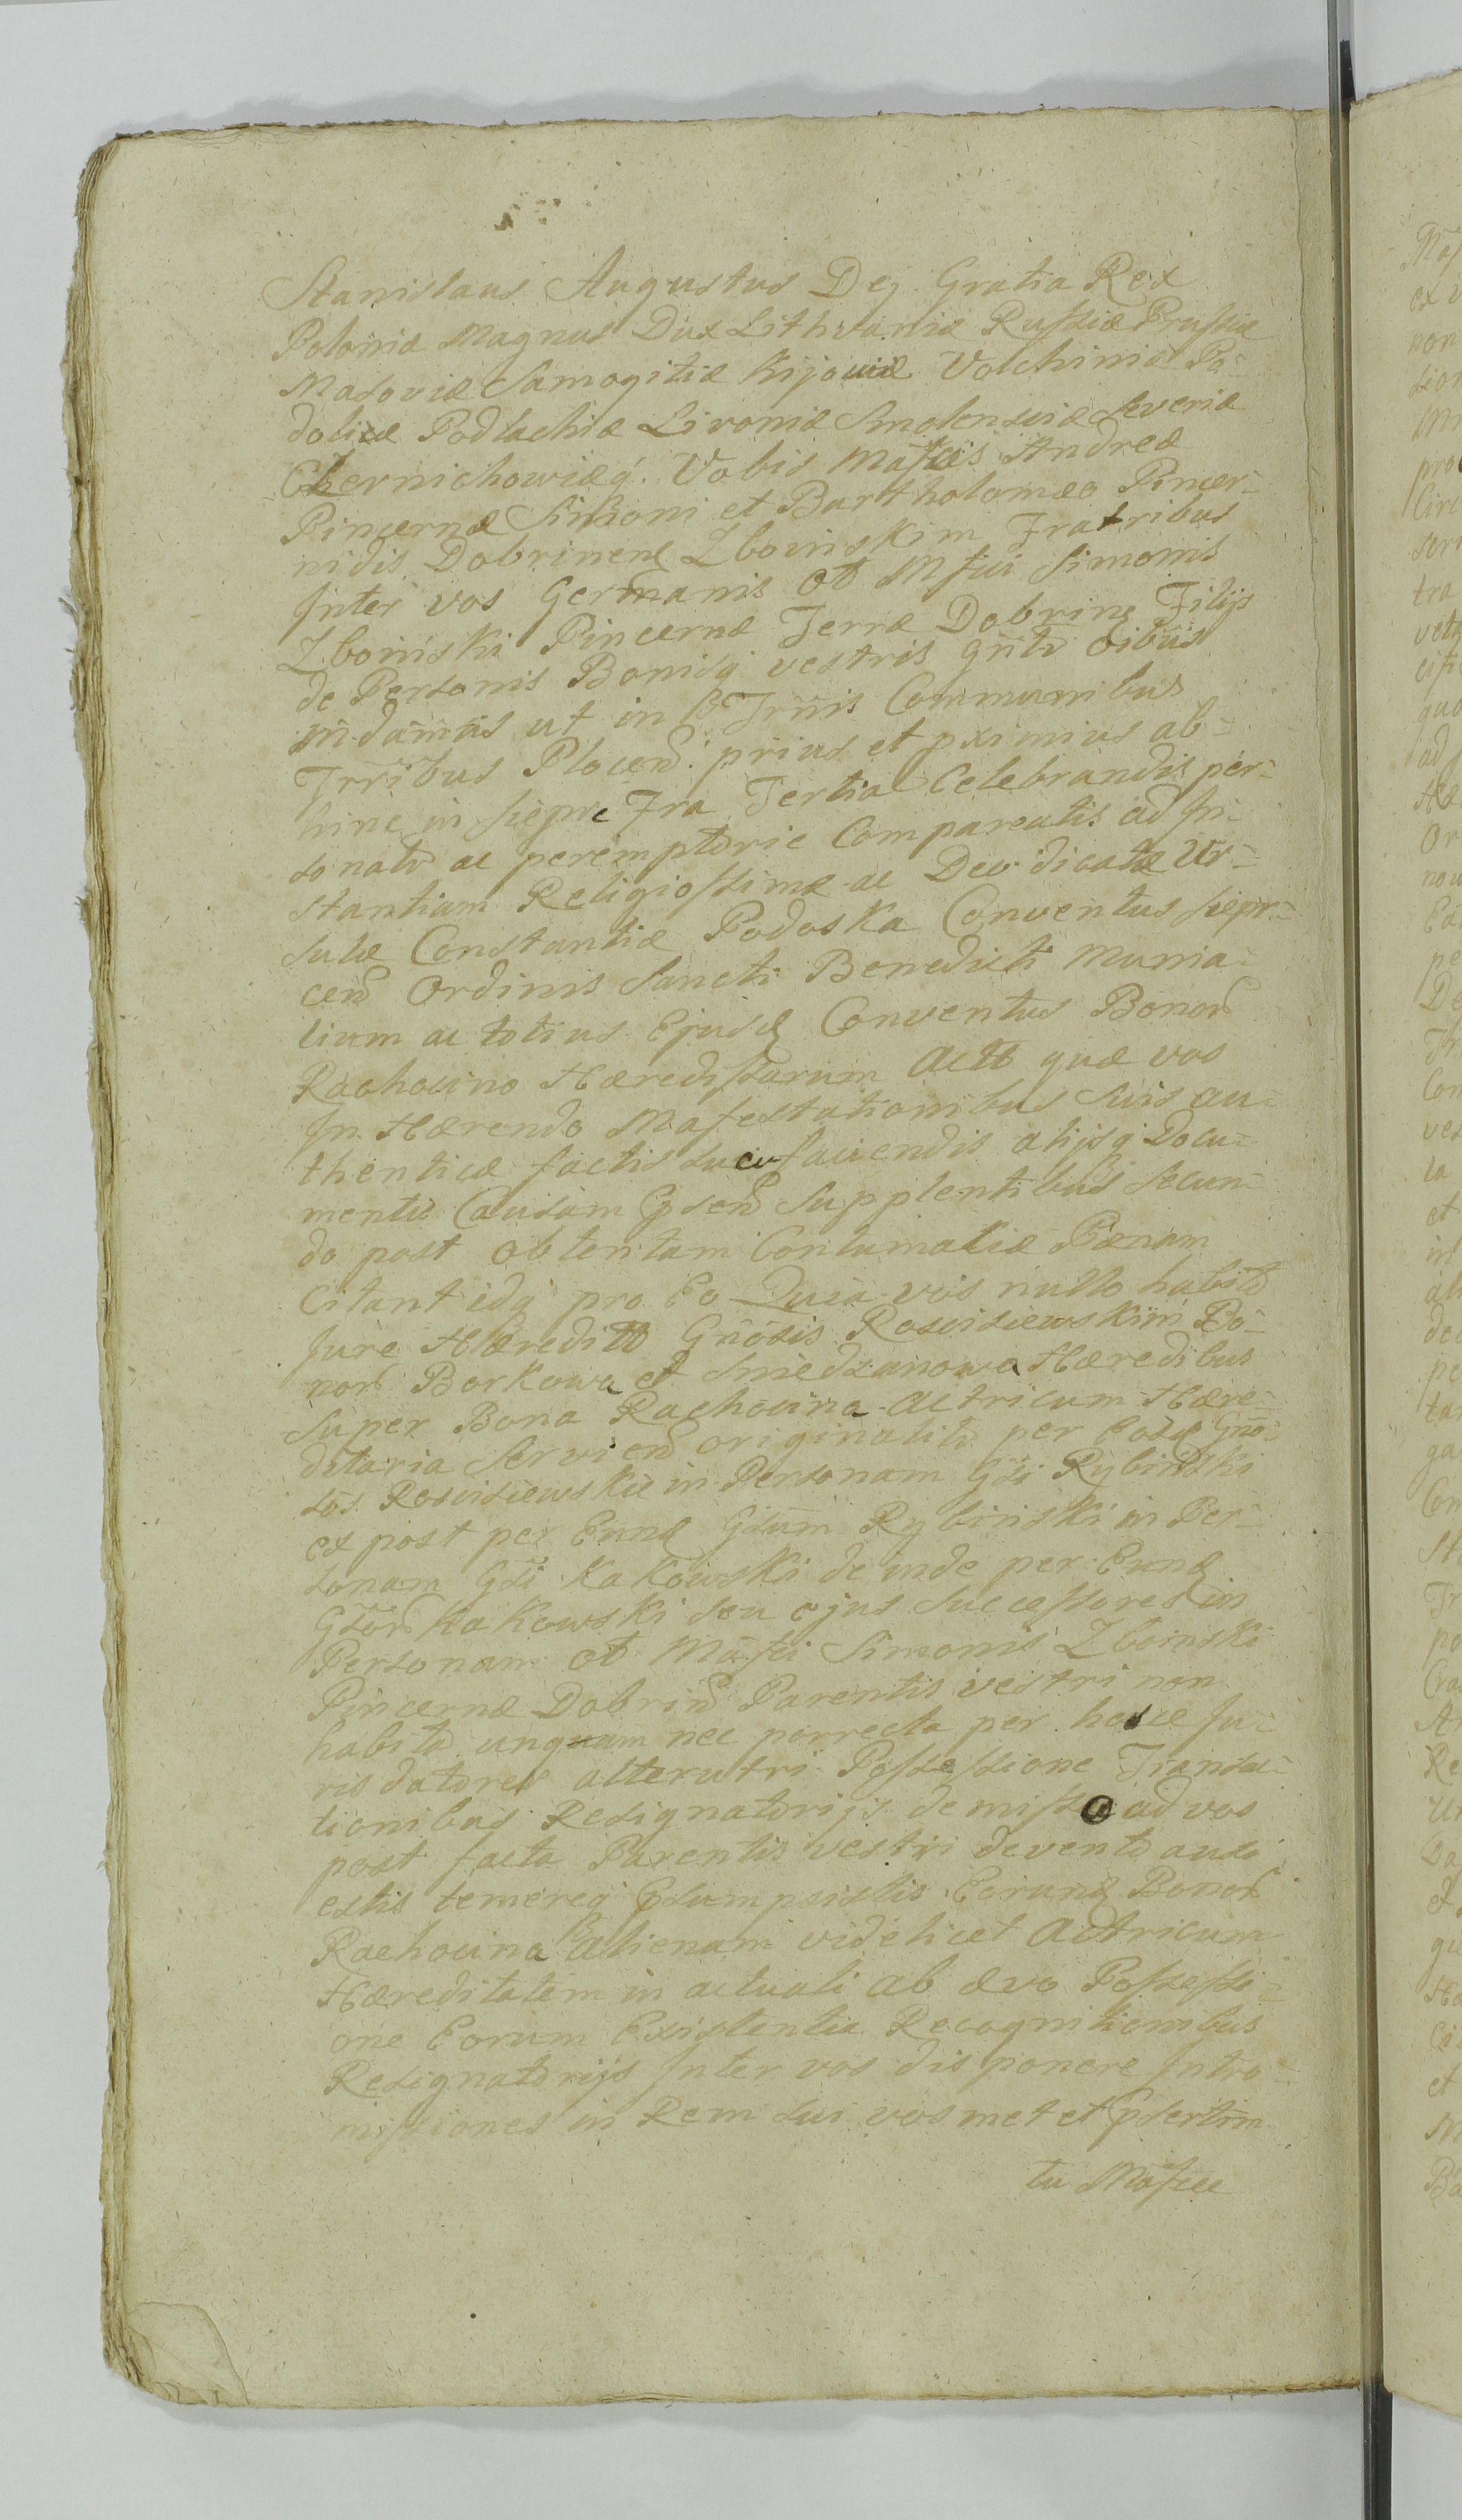 Stanislaus Augustus Dej Gratia Rex
Poloniæ Magnus Dux Lithvaniæ Russiæ Prussiæ
Masoviæ Samogitiæ Kijowiæ Volchiniæ Po-
doliæ Podlachiæ Livoniæ Smolensciæ Severiæ
Chernichowiæq. Vobis Mãfcis Andreæ
Pincernæ Simoni et Bartholomæo Pincer-
nidis Dobrinen Zboinskim Fratribus
Inter vos Germanis Ol Mfici Simonis
Zboinski Pincernæ Terræ Dobrinen Filijs
de Personis Bonisq vestris gñlr oibus
mdãmus ut in Trñis Communibus
Trribus Plocen: prius et pximius ab-
hinc in Siepre Fra Tertia Celebrandis per-
sonalr ac peremptorie Compareatis ad In-
stantiam Religiossimæ ac Deo dicatæ Ur-
sulæ Constantiæ Podoska Conventus Siepr-
cen Ordinis Sancti Benedicti Monia-
lium ac totius Ejusd Conventus Bonor
Rachocino Hæredissarum Actt quæ vos
In Hærendo Mafestationibus suis au-
thentice factis seu faciendis alijsq Docu-
mentis Causam Psen Supplentibus Secun-
do post obtentam Contumaciæ Pænam
Citant idq pro Eo Quia vos nullo habito
Jure Heredit Gñosis Rosciszewskim Bo-
nor Borkowa et Smiedzanowa Hæredibus
Super Bona Rachocina Actricum Hære-
ditaria Servien originalitr per Eosd Gño-
sos Rosciszewskie in Personam Gsi Rybinski
ex post per Eund Gsum Rybinski in Per-
sonam Gsi Kakowski de inde per Eund
Kakowski seu ejus Successores in
Personam ol Mãfci Simonis Zboinski
Pincernæ Dobrin Parentis vestri non
habita unquam nec porrecta per hosce Ju-
ris datores alterutri Possessione Transa-
ctionibus Resignatorijs demisso ad vos
post facta Parentis vestri devento ausi
estis temereq Psumpsistis Eorund Bonor
Rachocina alienam videlicet Actricum
Hæreditatem in actuali ab ævo Possessi-
one Eorum Existentia Recognitionibus
Resignatorijs Inter vos disponere Intro-
missiones in Rem sui vosmet et Psertim
tu Mãfce